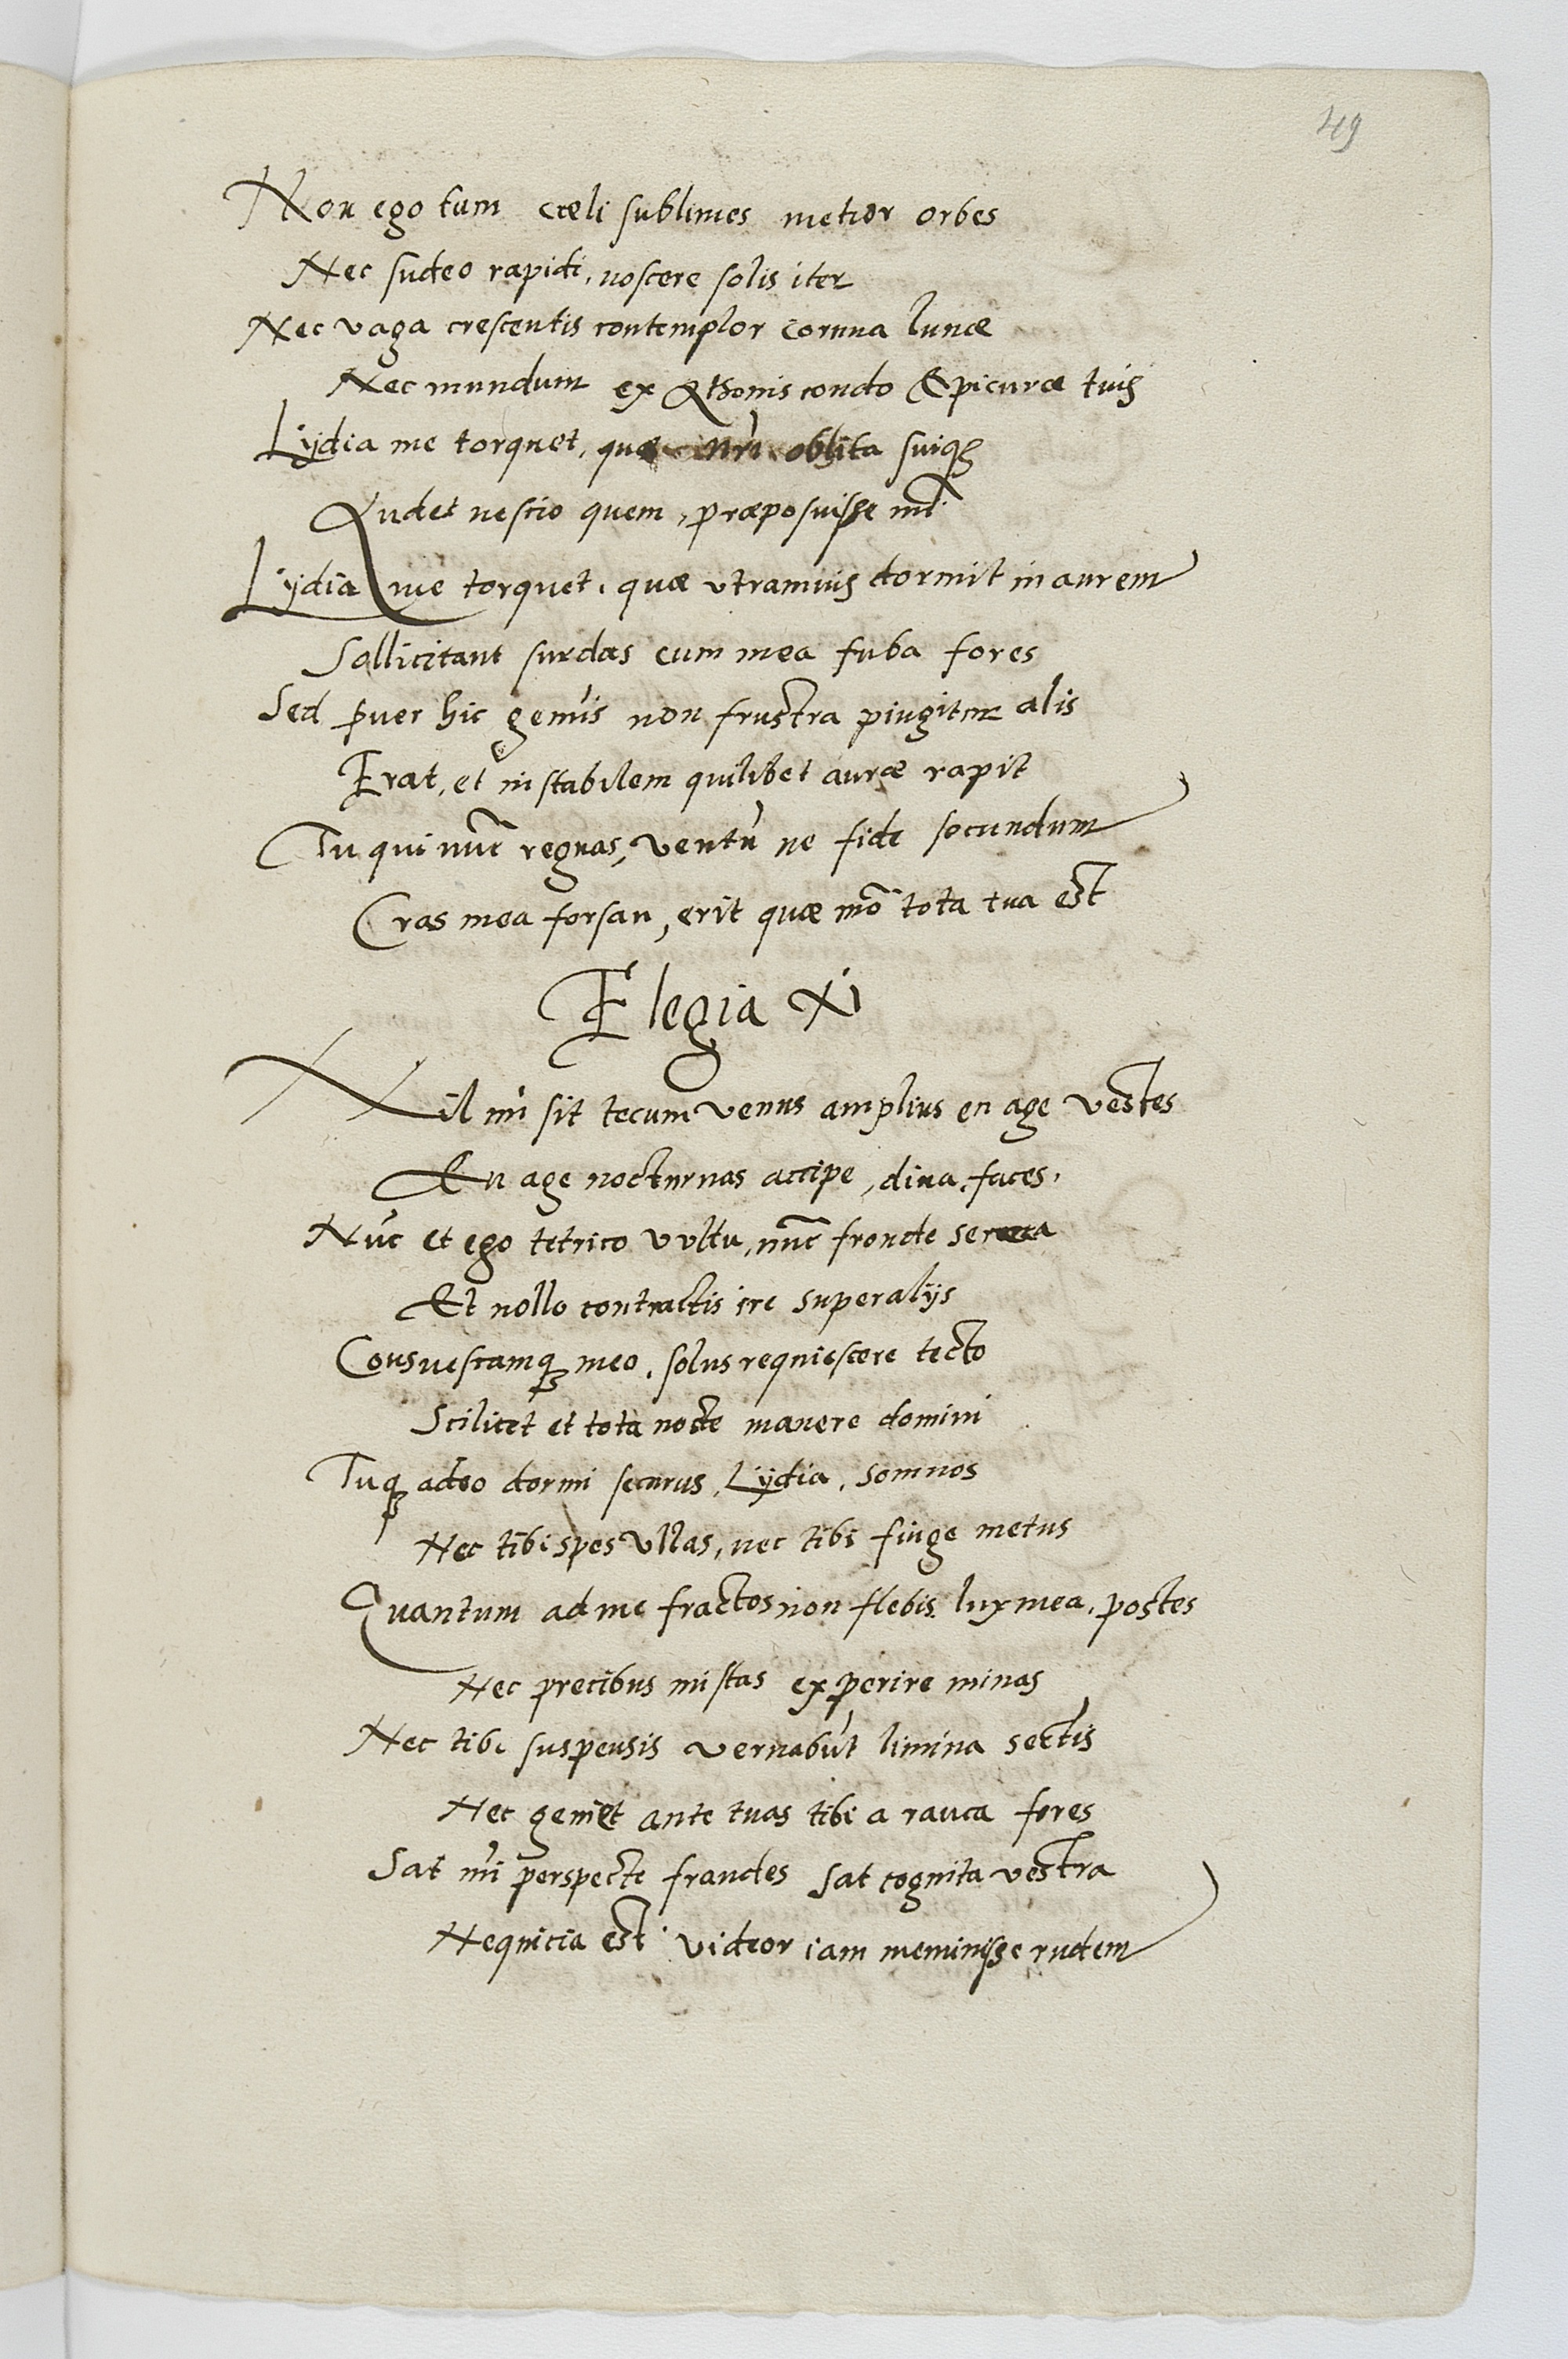 49
Non ego tum cœli sublimes metior orbes
Nec sudeo rapidi, noscere solis iter
Nec vaga crescentis contemplor cornua lunæ
Nec mundum ex Athomis condo Epicuræ tuis
Lydia me torquet, quæ nrĩ oblita suiq3
Audet nescio quem, præposuisse mĩ.
Lydia me torquet, quæ utramuis dormit in aurem
Sollicitant surdas cum mea fuba fores
Sed puer hic gemĩs non frustra pingitur alis
Errat, et instabilem quilibet auræ rapit
Tu qui nũc regnas, ventũ ne fide secundum
Cras mea forsan, erit quæ mõ tota tua est
Elegia XI
Nil mĩ sit tecum venus amplius en age vestes
En age nocturnas accipe, diua, faces,
Nũc et ego tetrico vultu, nũc fronde
Et nollo contractis ire superalijs
Consuescamq3 meo, solus requiescere tecto
Scilicet et tota nocte manere domini
Tuq3 adeo dormi securus, Lydia, somnos
Nec tibi spes ullas, nec tibi finge metus
Quantum ad me fractos non flebis, lux mea, postes
Nec precibus mistas experire minas
Nec tibi suspensis vernabũt limina sectis
Nec gemet ante tuas tibi a rauca fores
Sat mĩ perspecte fraudes sat cognita vestra
Nequicia est videor iam meminisse rudem